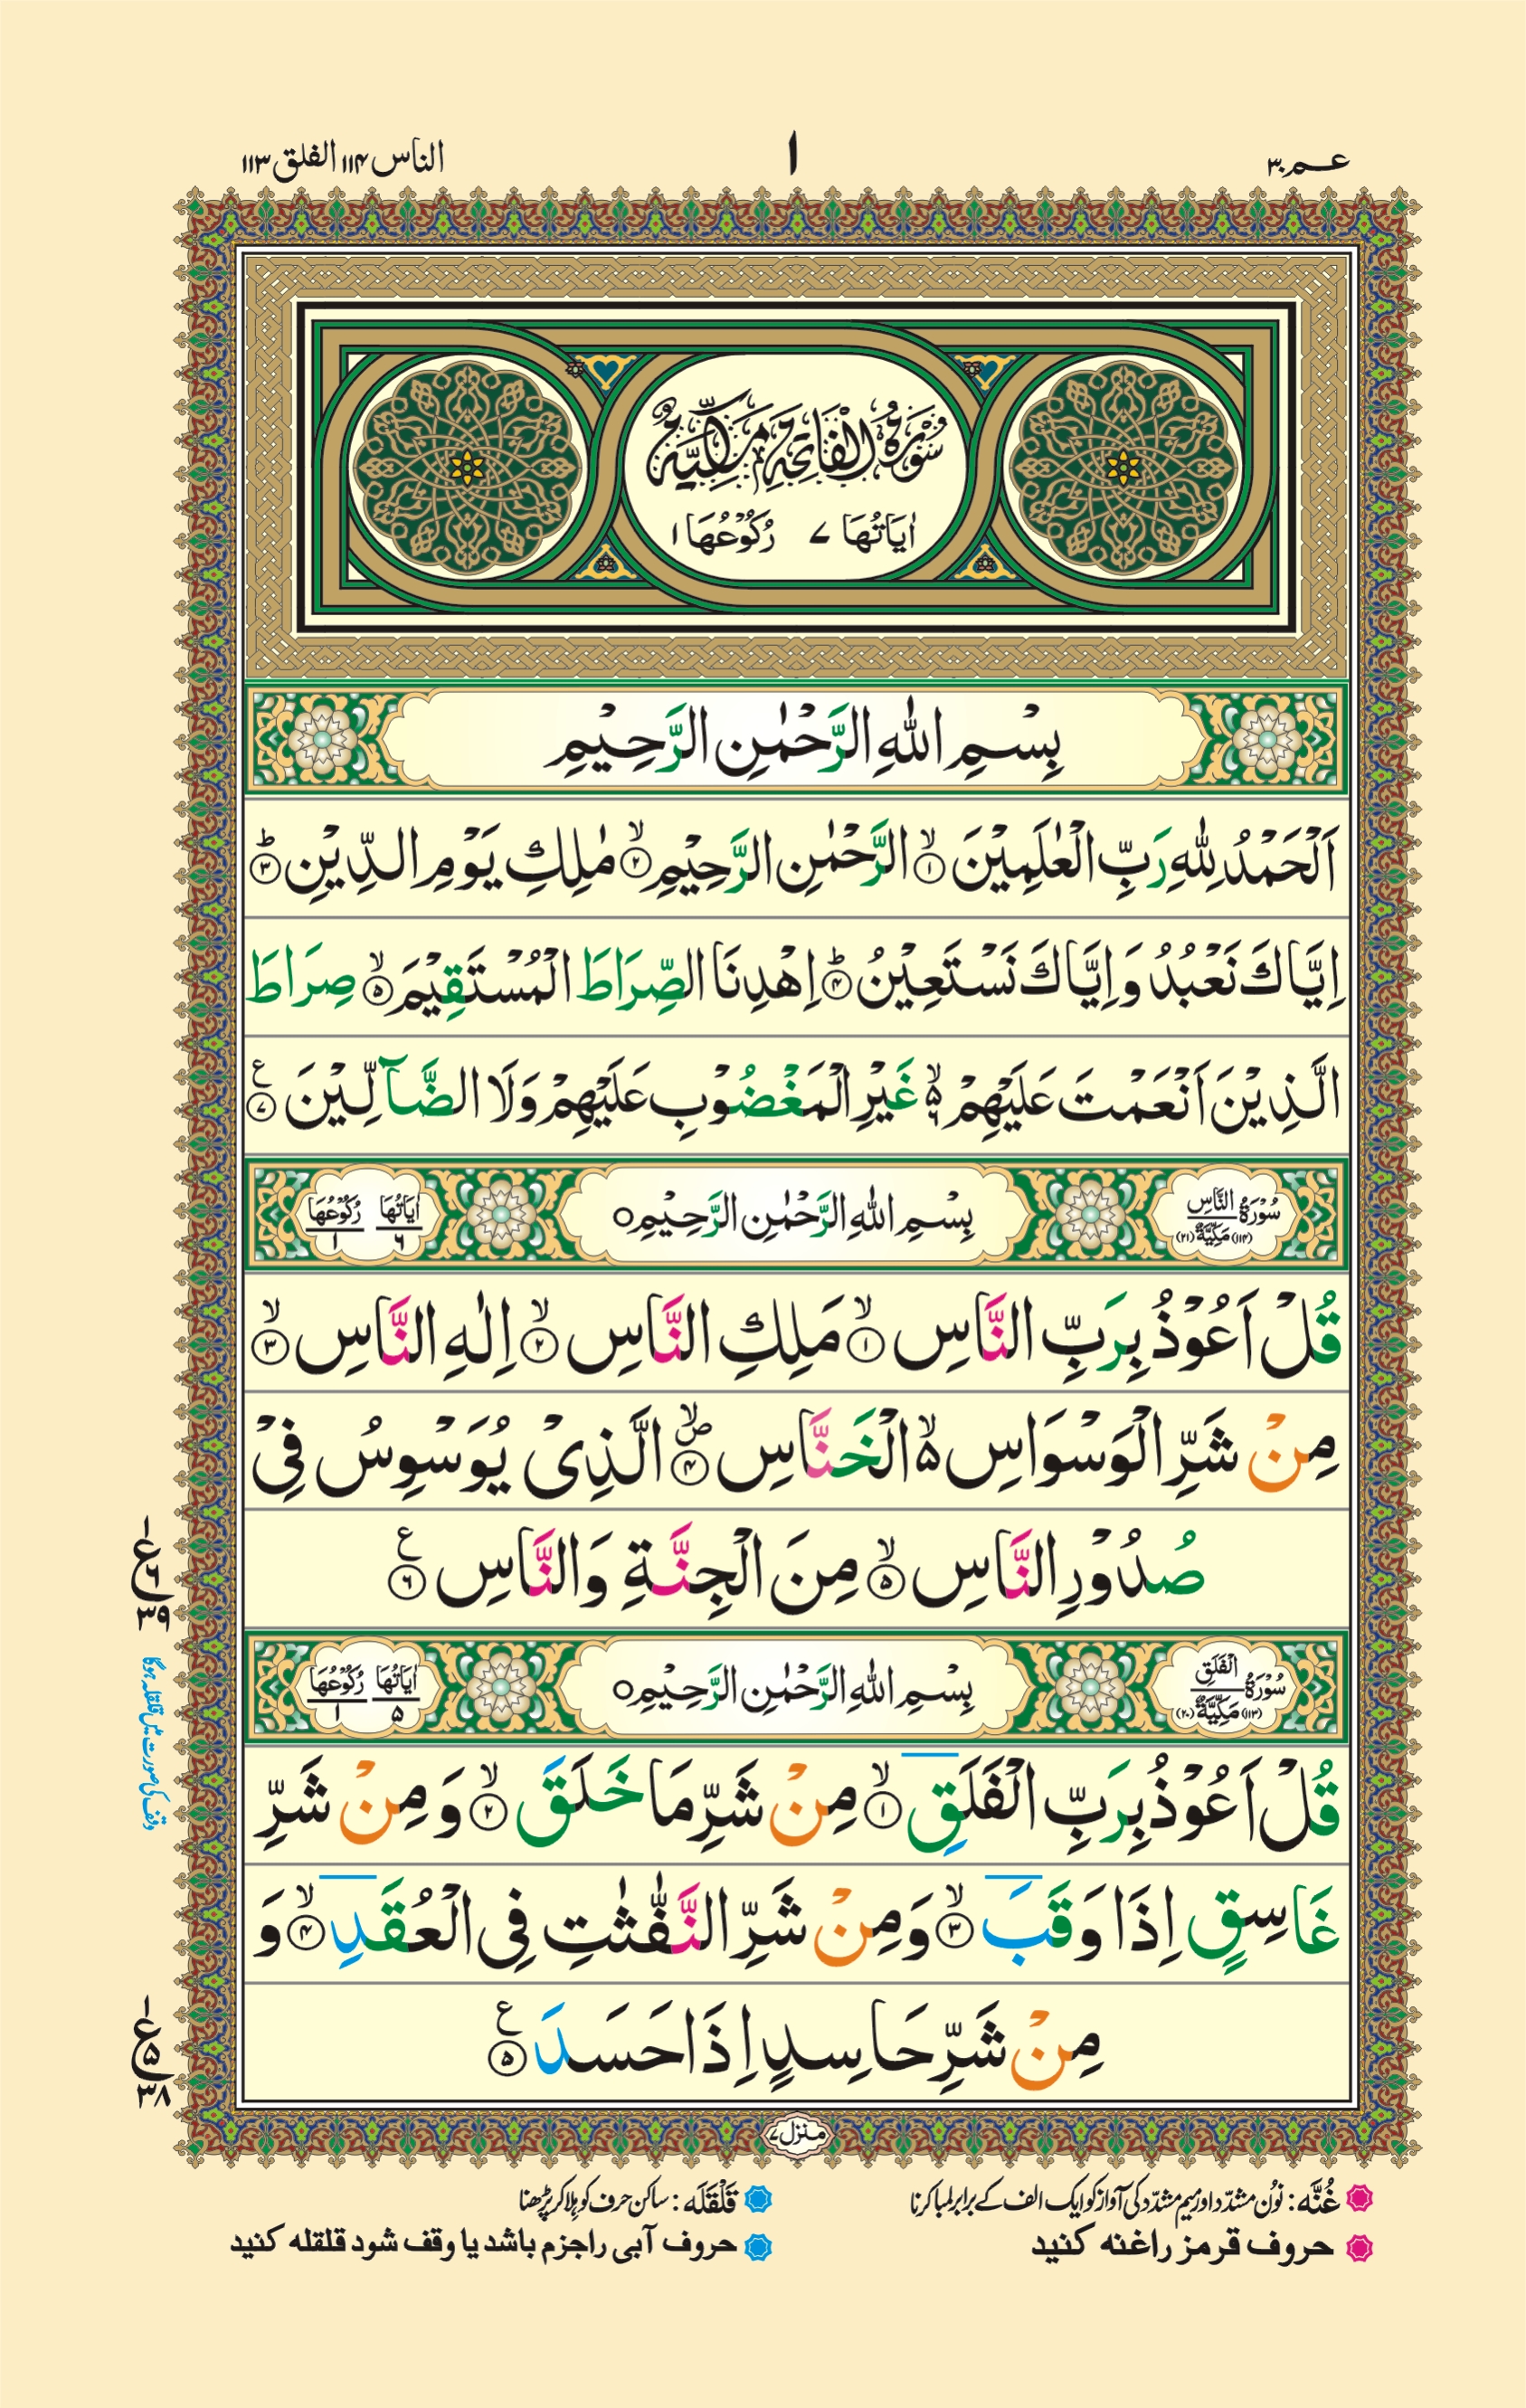 عم ۳۰
۱
الناس ۱۱۴ الفلق ۱۱۳
سُوْرَةُ الْفَاتِحَةِ مَكِّيَّةٌ
اٰيَاتُهَا ۷ رُكُوْعُهَا ۱
بِسْمِ اللّٰهِ الرَّحْمٰنِ الرَّحِيْمِ
اَلْحَمْدُ لِلّٰهِ رَبِّ الْعٰلَمِيْنَ ۙ﴿۱﴾ الرَّحْمٰنِ الرَّحِيْمِ ۙ﴿۲﴾ مٰلِكِ يَوْمِ الدِّيْنِ ؕ﴿۳﴾
اِيَّاكَ نَعْبُدُ وَ اِيَّاكَ نَسْتَعِيْنُ ؕ﴿۴﴾ اِهْدِنَا الصِّرَاطَ الْمُسْتَقِيْمَ ۙ﴿۵﴾ صِرَاطَ
الَّذِيْنَ اَنْعَمْتَ عَلَيْهِمْ ۙ۬ۦ غَيْرِ الْمَغْضُوْبِ عَلَيْهِمْ وَلَا الضَّآلِّيْنَ ﴿۷﴾ ع
سُوْرَةُ النَّاسِ (۱۱۴) مَكِّيَّةٌ (۲۱) بِسْمِ اللّٰهِ الرَّحْمٰنِ الرَّحِيْمِ ○ اٰيَاتُهَا ۶ رُكُوْعُهَا ۱
قُلْ اَعُوْذُ بِرَبِّ النَّاسِ ۙ﴿۱﴾ مَلِكِ النَّاسِ ۙ﴿۲﴾ اِلٰهِ النَّاسِ ۙ﴿۳﴾
مِنْ شَرِّ الْوَسْوَاسِ ۙ۬ الْخَنَّاسِ ۪ۙ﴿۴﴾ الَّذِىْ يُوَسْوِسُ فِىْ
صُدُوْرِ النَّاسِ ۙ﴿۵﴾ مِنَ الْجِنَّةِ وَ النَّاسِ ﴿۶﴾ ع
۱ ع ۶ ۳۹
وقف کی صورت میں قلقلہ ہوگا
سُوْرَةُ الْفَلَقِ (۱۱۳) مَكِّيَّةٌ (۲۰) بِسْمِ اللّٰهِ الرَّحْمٰنِ الرَّحِيْمِ ○ اٰيَاتُهَا ۵ رُكُوْعُهَا ۱
قُلْ اَعُوْذُ بِرَبِّ الْفَلَقِ ۙ﴿۱﴾ مِنْ شَرِّ مَا خَلَقَ ۙ﴿۲﴾ وَ مِنْ شَرِّ
غَاسِقٍ اِذَا وَقَبَ ۙ﴿۳﴾ وَ مِنْ شَرِّ النَّفّٰثٰتِ فِى الْعُقَدِ ۙ﴿۴﴾ وَ
مِنْ شَرِّ حَاسِدٍ اِذَا حَسَدَ ﴿۵﴾ ع
۱ ع ۵ ۳۸
منزل ۷
غُنَّه: نوُن مشدّد اور میم مشدّد کی آواز کو ایک الف کے برابر لمبا کرنا
قَلْقَلَه: ساکن حرف کو ہلا کر پڑھنا
حروف قرمز را غنه کنید
حروف آبی را جزم باشد یا وقف شود قلقله کنید